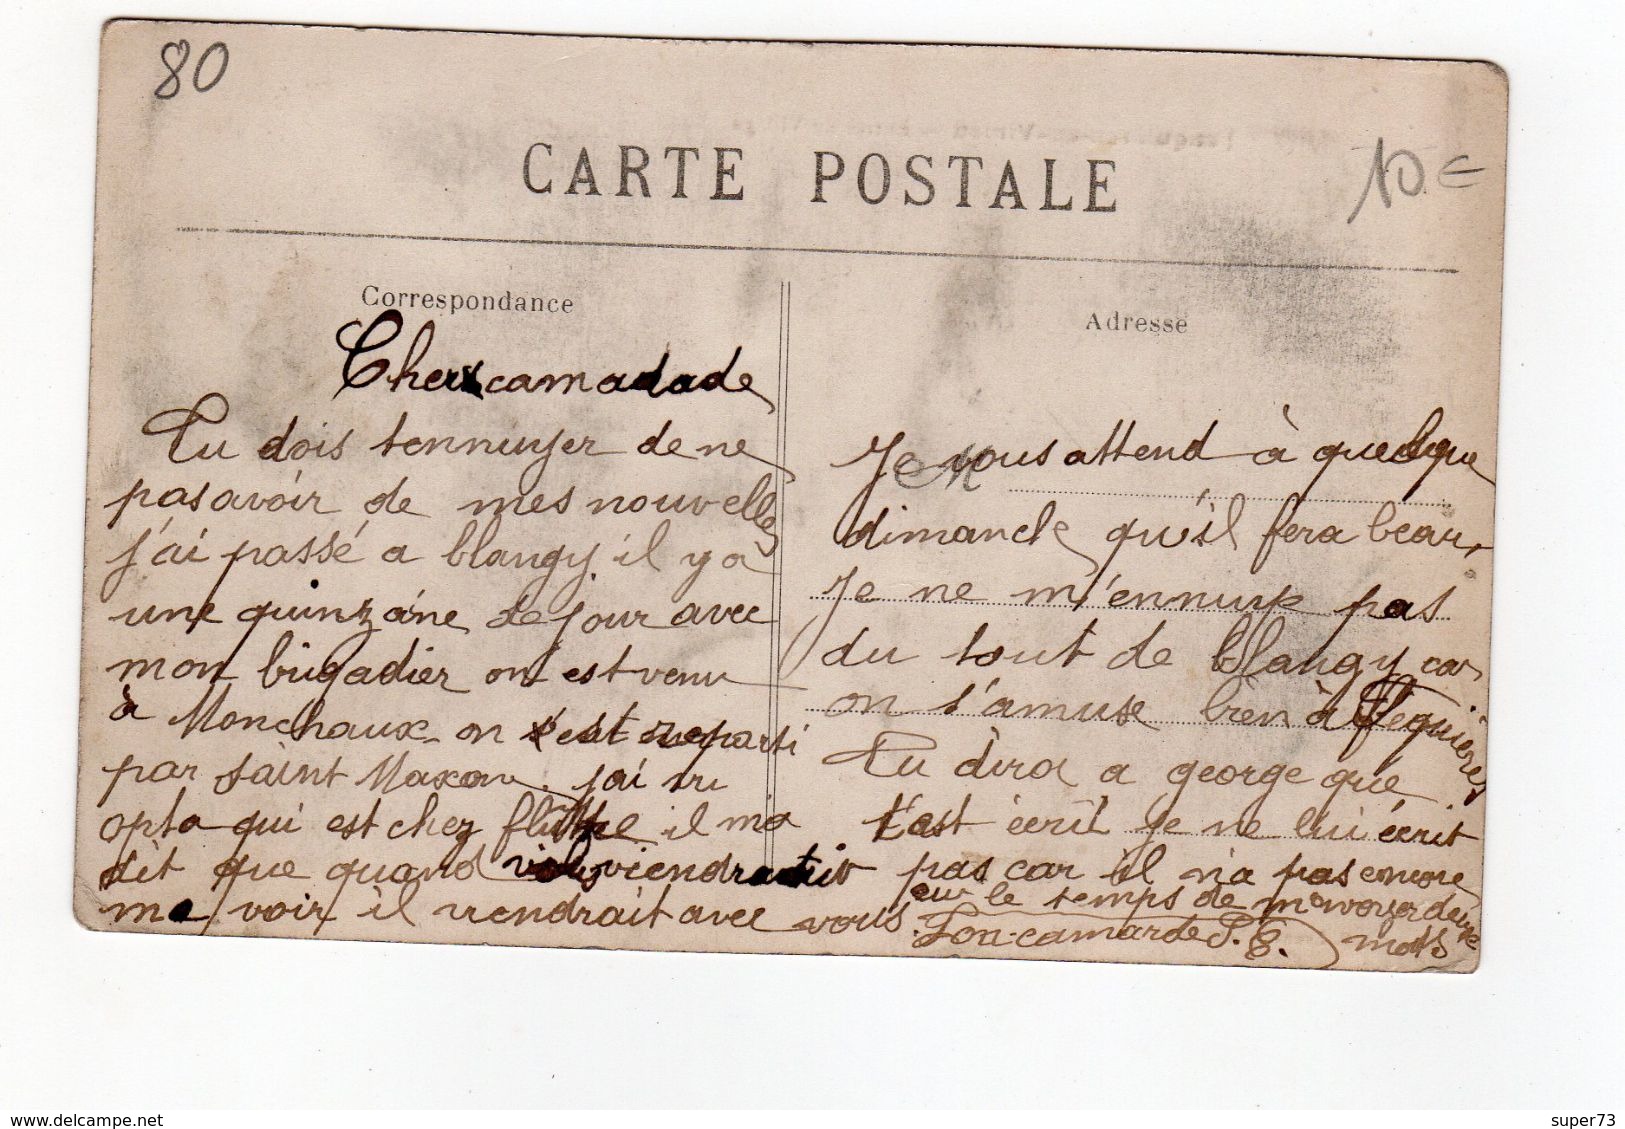 80
CARTE POSTALE
10 €
Correspondance
Cher camadade
Tu dois tennuyer de ne
pas avoir de mes nouvelles
j'ai passé a blangy il y a
une quinzáne de jour avec
mon brigadier on est venu
à Monchaux on s'est reparti
par saint Maxan. j'ai vu
opta qui est chez flutre il ma
dit que quand viendrait
me voir il viendrait avec vous.
Adresse
M
Je vous attend à quelque
dimanche qu'il fera beau,
Je ne m'ennuye pas
du tout de blangy car
on s'amuse bien à Fequieres
Tu dira a george que
t'ast écrit je ne lui écrit
pas car il n'a pas encore
eur le temps de m'envoyer deux
mots
Ton camarde
delcampe.net
super73